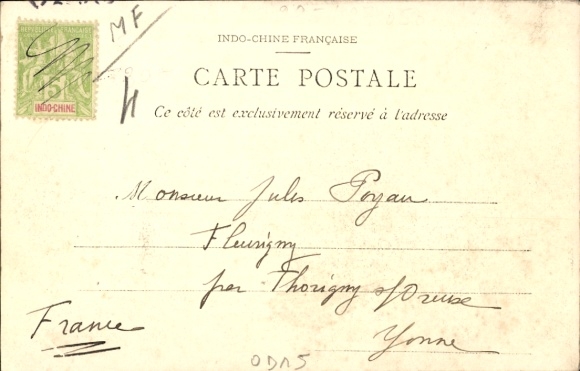 RÉPUBLIQUE FRANÇAISE
5
INDO-CHINE
MF
INDO-CHINE FRANÇAISE
CARTE POSTALE
Ce côté est exclusivement réservé à l'adresse
Monsieur Jules Poyau
Fleurigny
par Thorigny s/Oreuse
Yonne
France